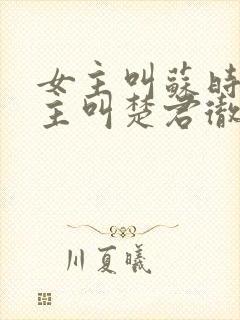 女主叫蘇時
主叫楚君徹
川夏曦